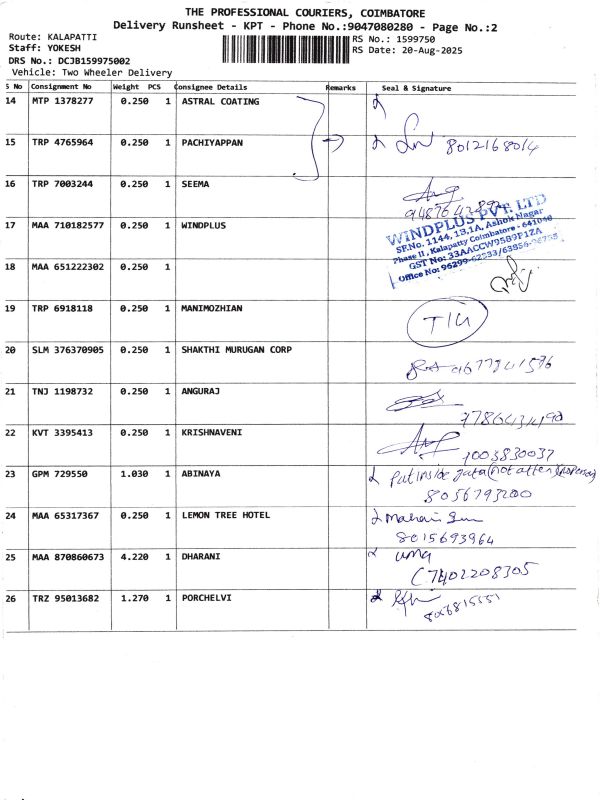 THE PROFESSIONAL COURIERS, COIMBATORE
Delivery Runsheet - KPT - Phone No.:9047080280 - Page No.:2
Route: KALAPATTI RS No.: 1599750
Staff: YOKESH RS Date: 20-Aug-2025
DRS No.: DCJB159975002
Vehicle: Two Wheeler Delivery
S No Consignment No Weight PCS Consignee Details Remarks Seal & Signature
14 MTP 1378277 0.250 1 ASTRAL COATING
15 TRP 4765964 0.250 1 PACHIYAPPAN 8012168014
16 TRP 7003244 0.250 1 SEEMA
17 MAA 710182577 0.250 1 WINDPLUS
WINDPLUS PVT. LTD
SF.No. 1144, 13,1A, Ashok Nagar
Phase II, Kalapatty Coimbatore - 641048
GST No: 33AACCW9589F1ZA
Office No: 96299-62533/63856-
18 MAA 651222302 0.250 1
19 TRP 6918118 0.250 1 MANIMOZHIAN
20 SLM 376370905 0.250 1 SHAKTHI MURUGAN CORP
21 TNJ 1198732 0.250 1 ANGURAJ
22 KVT 3395413 0.250 1 KRISHNAVENI 1003830037
23 GPM 729550 1.030 1 ABINAYA Put inside
8056793200
24 MAA 65317367 0.250 1 LEMON TREE HOTEL
8015693964
25 MAA 870860673 4.220 1 DHARANI uma
7402208305
26 TRZ 95013682 1.270 1 PORCHELVI